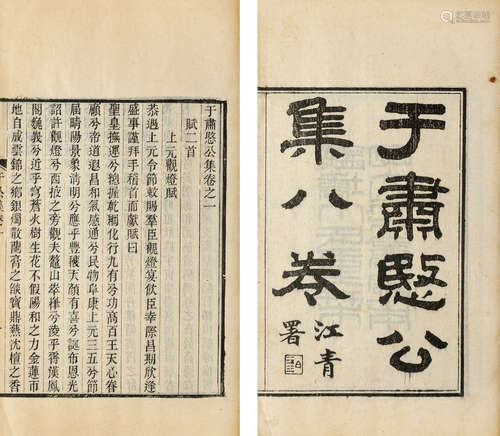 于肅愍公
集八卷
江青
署
于肅愍公集卷之一
賦二首
上元觀燈賦
恭遇上元令節敕賜羣臣觀燈宴飲臣幸際昌期欣逢
盛事謹拜手稽首而獻賦曰
聖皇撫運兮總攬乾綱化行九有兮功高百王天心眷
顧兮帝道遐昌和氣感通兮民物阜康上元三五兮節
屆晴陽景象清明兮應乎豐穰天顏有喜兮誕布恩光
詔許觀燈兮西掖之旁觀夫鰲山峯嶂兮凌乎漢鳳
閣巍峩兮近乎穹蒼火樹生花不假陽和之力金蓮帀
地自成雲錦之鄉銀燭散蘭膏之燄寶鼎爇沈檀之香